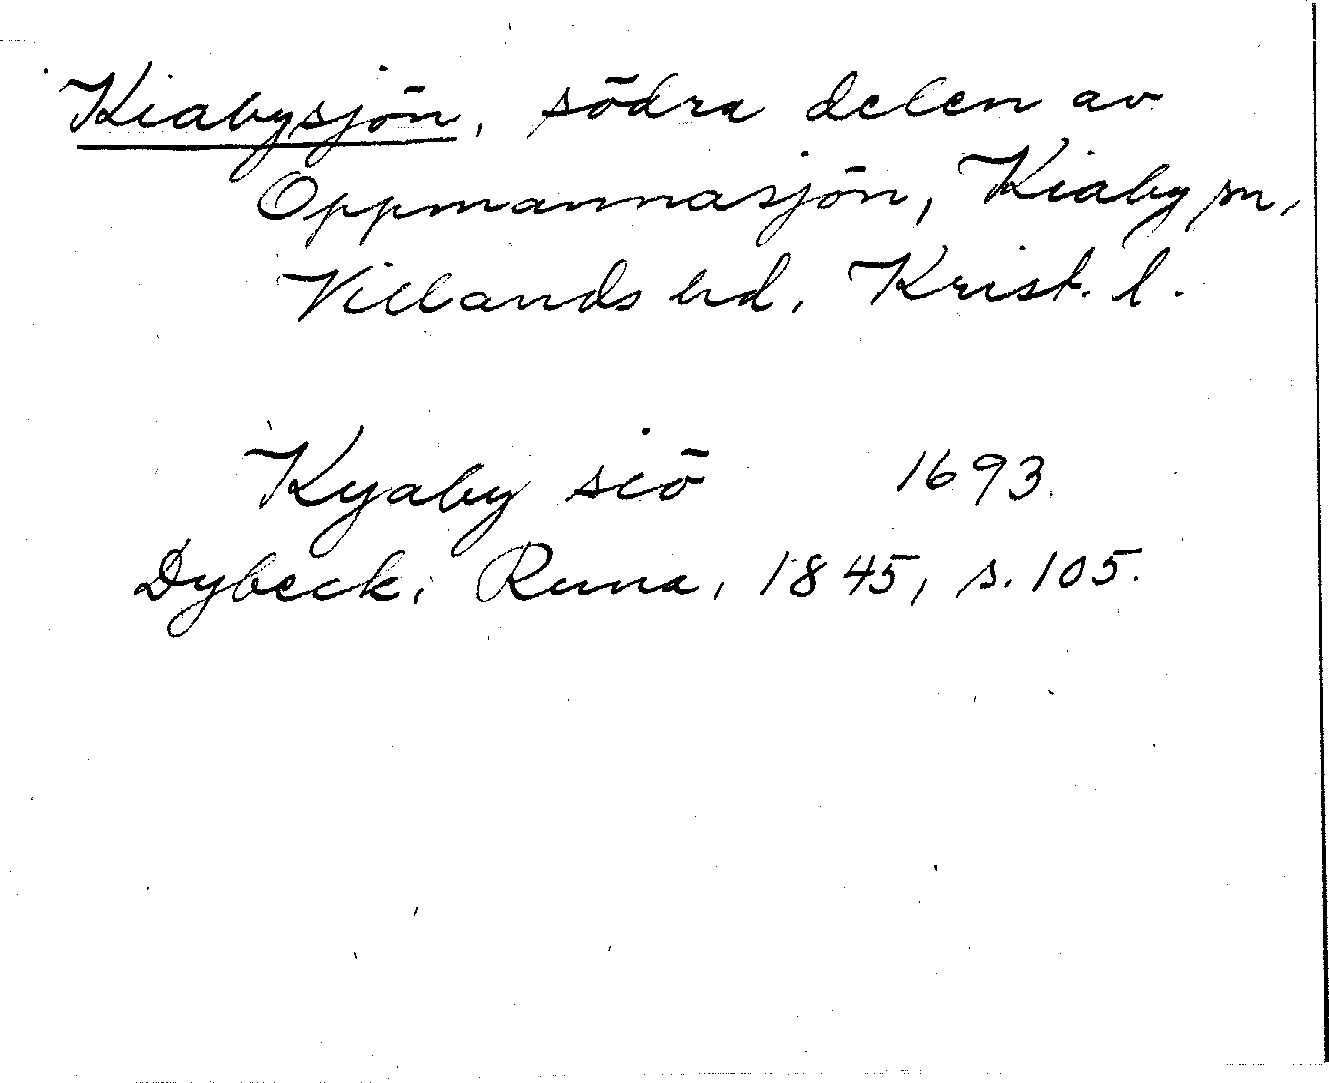 Kiabysjön, södra delen av
Oppmannasjön, Kiaby sn,
Villands hd, Krist. l.
Kyaby siö 1693
Dybeck, Runa, 1845, s. 105.